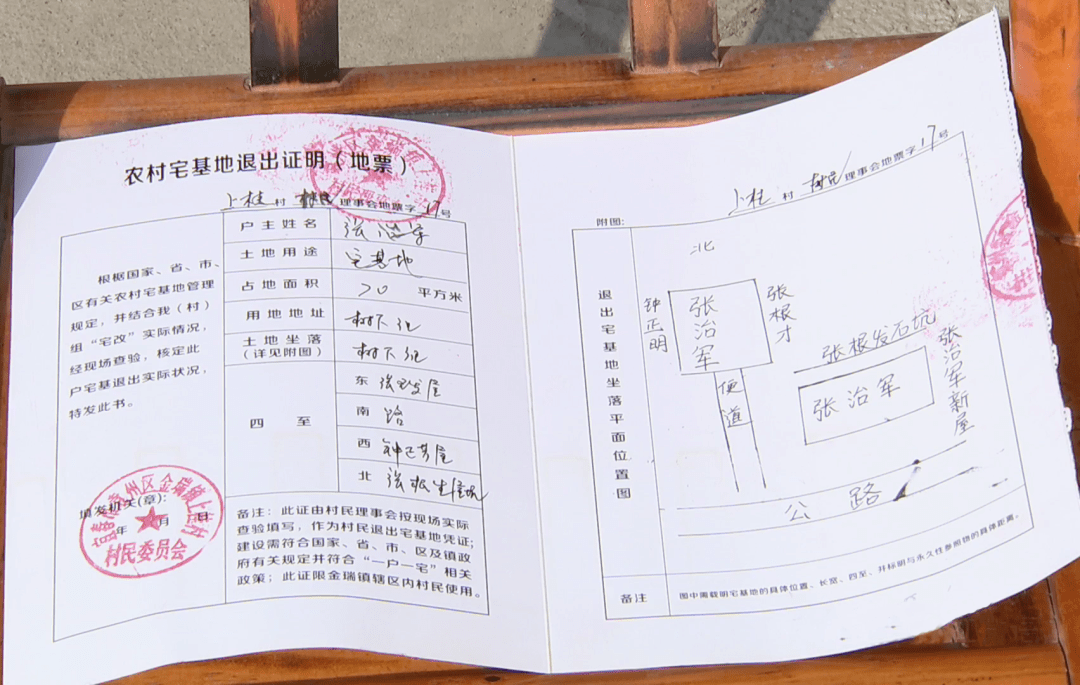 农村宅基地退出证明（地票）
上桂村 树民 理事会地票字 17号
根据国家、省、市、
区有关农村宅基地管理
规定，并结合我（村）
组“宅改”实际情况，
经现场查验，核定此
户宅基退出实际状况，
特发此书。
填发机关(章)：
年 月 日
宜春市袁州区金瑞镇上桂村
村民委员会
户主姓名 张治军
土地用途 宅基地
占地面积 70 平方米
用地地址 树下组
土地坐落
（详见附图） 树下组
四至
东 张根发屋
南 路
西 钟正明屋
北
备注：此证由村民理事会按现场实际
查验填写，作为村民退出宅基地凭证；
建设需符合国家、省、市、区及镇政
府有关规定并符合“一户一宅”相关
政策；此证限金瑞镇辖区内村民使用。
上桂村 树民 理事会地票字 17号
附图：
退出宅基地坐落平面位置图
北
钟正明
张治军
张根才
便道
张根发石坑
张治军
张治军新屋
公路
备注
图中需载明宅基地的具体位置、长宽、四至，并标明与永久性参照物的具体距离。